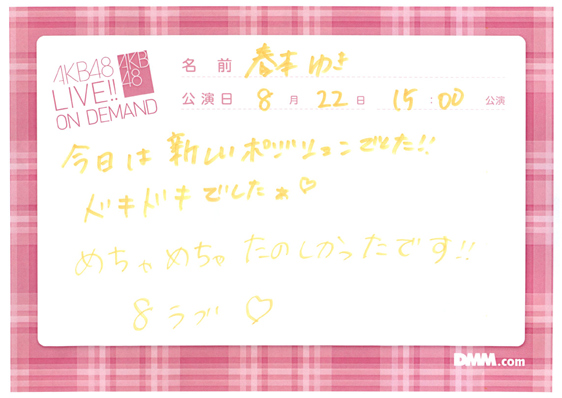 AKB48
LIVE!!
ON DEMAND
AKB
48
名前 春本ゆき
公演日 8月22日 15:00 公演
今日は新しいポジションでした!!
ドキドキでしたぁ♡
めちゃめちゃたのしかったです!!
8ラブ♡
DMM.com